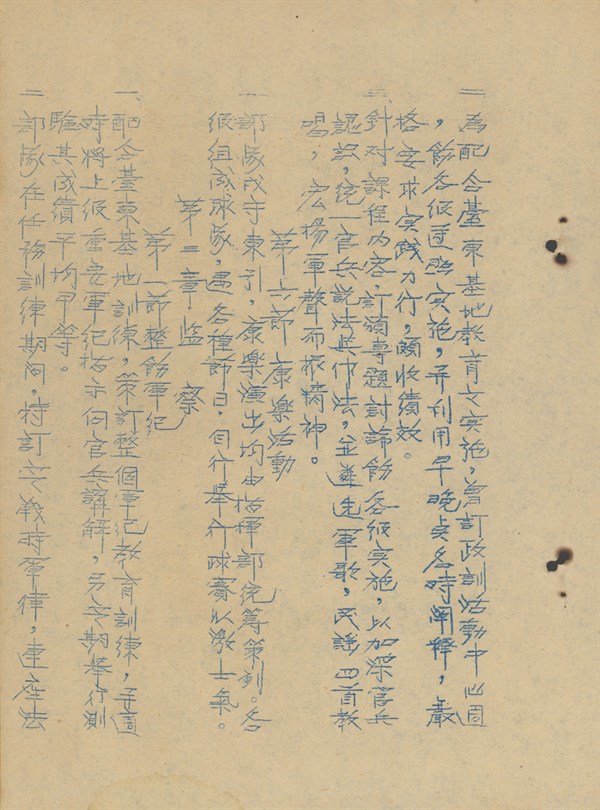 二 為配合臺東基地教育之實施，曾訂政訓活動中心週
，飭各級遵照實施，并利用早晚点名時阐釋，嚴
格要求实践力行，頗收績效。
三 針对課程内容，訂頒專題討論飭各级实施，以加深官兵
認识，统一官兵説法與作法，並遴选军歌，民謠四首教
唱，宏揚軍聲而振精神。
第六節 康樂活動
一 部隊戍守東引，康樂演出均由指揮部统籌策划。各
级组成球隊，遇各種節日，自行舉行球賽以激士氣。
第三章 监察
第一節 整飭軍纪
一、配合臺東基地訓練，策訂整個軍纪教育訓練，手
時將上级重要军纪指示向官兵講解，另定期舉行測
驗其成績平均甲等。
二 部隊在任務訓練期间，特訂定戰時軍律，連座法